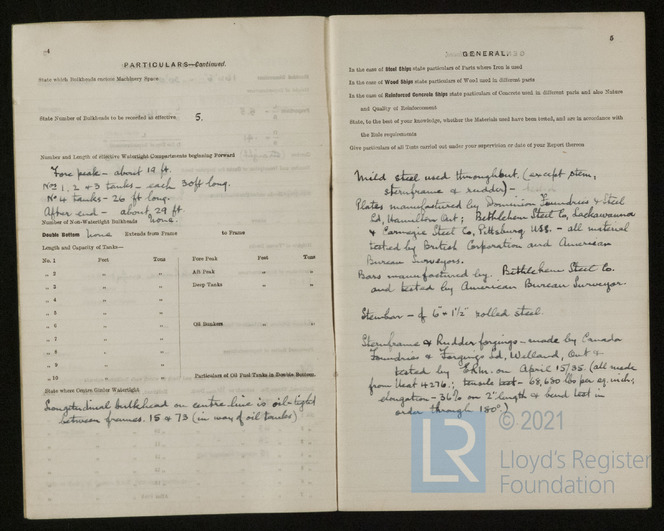 4
PARTICULARS—Continued.
State which Bulkheads enclose Machinery Space
State Number of Bulkheads to be recorded as effective 5.
Number and Length of effective Watertight Compartments beginning Forward
Fore peak - about 19 ft.
Nos 1, 2 & 3 tanks - each 30ft long.
No 4 tanks - 26 ft long.
After end - about 29 ft.
Number of Non-Watertight Bulkheads none.
Double Bottom none Extends from Frame to Frame
Length and Capacity of Tanks—
No. 1 Feet Tons Fore Peak Feet Tons
„ 2 „ „ Aft Peak „ „
„ 3 „ „ Deep Tanks „ „
„ 4 „ „
„ 5 „ „
„ 6 „ „ Oil Bunkers „ „
„ 7 „ „
„ 8 „ „
„ 9 „ „
„ 10 „ „ Particulars of Oil Fuel Tanks in Double Bottom
State where Centre Girder Watertight
Longitudinal bulkhead on centre line is oil-tight
between frames 15 & 73 (in way of oil tanks)
5
GENERAL.
In the case of Steel Ships state particulars of Parts where Iron is used
In the case of Wood Ships state particulars of Wood used in different parts
In the case of Reinforced Concrete Ships state particulars of Concrete used in different parts and also Nature
and Quality of Reinforcement
State, to the best of your knowledge, whether the Materials used have been tested, and are in accordance with
the Rule requirements
Give particulars of all Tests carried out under your supervision or date of your Report thereon
Mild steel used throughout. (except stem,
sternframe & rudder) -
Plates manufactured by Dominion Foundries & Steel
Ld, Hamilton Ont; Bethlehem Steel Co, Lackawanna
& Carnegie Steel Co, Pittsburg, USS. - all material
tested by British Corporation and American
Bureau Surveyors.
Bars manufactured by Bethlehem Steel Co.
and tested by American Bureau Surveyor.
Stembar - of 6" × 1½" rolled steel.
Sternframe & Rudder forgings - made by Canada
Foundries & Forgings Ld, Welland, Ont &
tested by on April 15/35. (all made
from Heat 4276.; tensile test - 68,680 lbs per sq. inch;
elongation - 36% on 2" length & bend test in
order through 180°.)
© 2021
LR
Lloyd's Register
Foundation